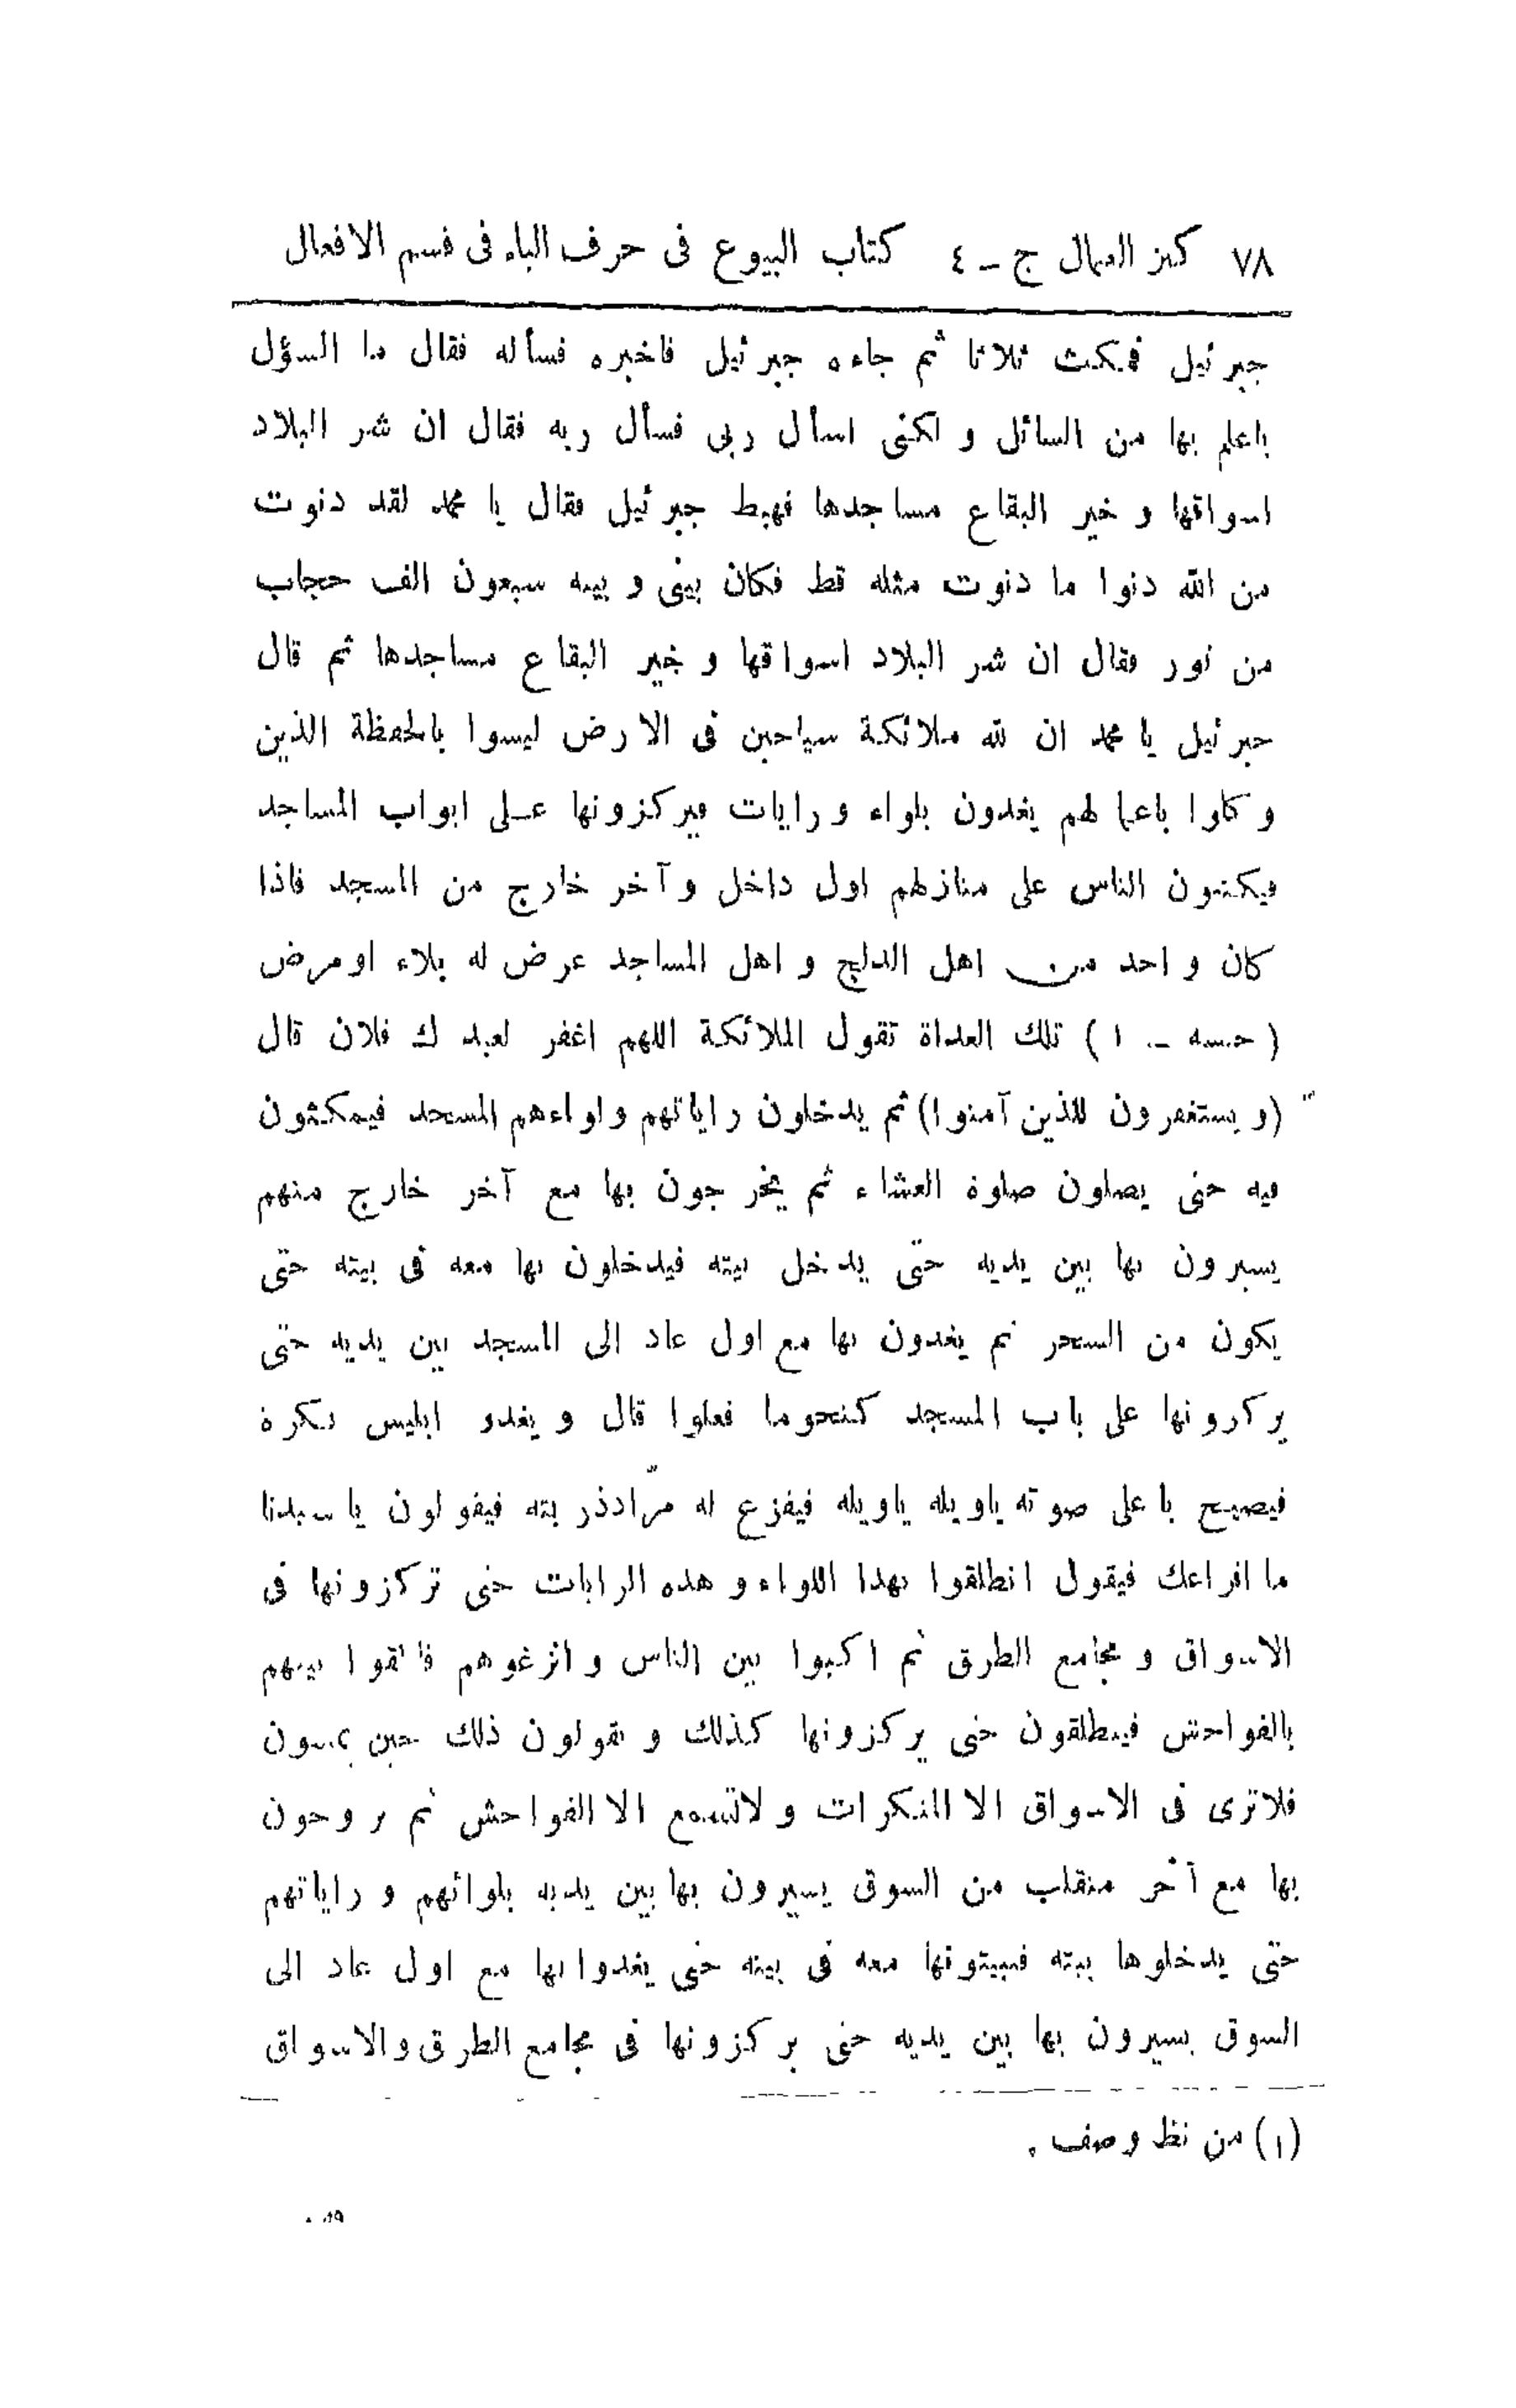 ٧٨ كنز العمال ج - ٤ كتاب البيوع فى حرف الباء فى قسم الافعال
جبرئيل فمكث ثلاثا ثم جاءه جبرئيل فاخبره فسأله فقال ما المسؤل
باعلم بها من السائل و لكنى اسأل ربى فسأل ربه فقال ان شر البلاد
اسواقها و خير البقاع مساجدها فهبط جبرئيل فقال يا محمد لقد دنوت
من الله دنوا ما دنوت مثله قط فكان بينى و بينه سبعون الف حجاب
من نور فقال ان شر البلاد اسواقها و خير البقاع مساجدها ثم قال
جبرئيل يا محمد ان لله ملائكة سياحين فى الارض ليسوا بالحفظة الذين
وكلوا باعمالهم يغدون بلواء و رايات فيركزونها على ابواب المساجد
فيكتبون الناس على منازلهم اول داخل و آخر خارج من المسجد فاذا
كان واحد من اهل الدلج و اهل المساجد عرض له بلاء او مرض
( حبسه - ١ ) تلك الغداة تقول الملائكة اللهم اغفر لعبدك فلان قال
(و يستغفرون للذين آمنوا) ثم يدخلون راياتهم ولواءهم المسجد فيمكثون
فيه حتى يصلون صلوة العشاء ثم يخرجون بها مع آخر خارج منهم
يسيرون بها بين يديه حتى يدخل بيته فيدخلون بها معه فى بيته حتى
يكون من السحر ثم يغدون بها مع اول غاد الى المسجد بين يديه حتى
يركزونها على باب المسجد كنحوما فعلوا قال و يغدو ابليس بكرة
فيصيح باعلى صوته ياويله ياويله فيفزع له مرّادذريته فيقولون يا سيدنا
ما افزاعك فيقول انطلقوا بهذا اللواء و هذه الرايات حتى تركزونها فى
الاسواق و مجامع الطرق ثم اكبوا بين الناس و انزغوهم فالقوا بينهم
بالفواحش فينطلقون حتى يركزونها كذلك و يقولون ذلك حين يمسون
فلاترى فى الاسواق الا المنكرات و لاتسمع الا الفواحش ثم يروحون
بها مع آخر منقلب من السوق يسيرون بها بين يديه بلوائهم و راياتهم
حتى يدخلوها بيته فيبيتونها معه فى بيته حتى يغدوا بها مع اول غاد الى
السوق يسيرون بها بين يديه حتى يركزونها فى مجامع الطرق و الاسواق
(١) من نظ وصف .